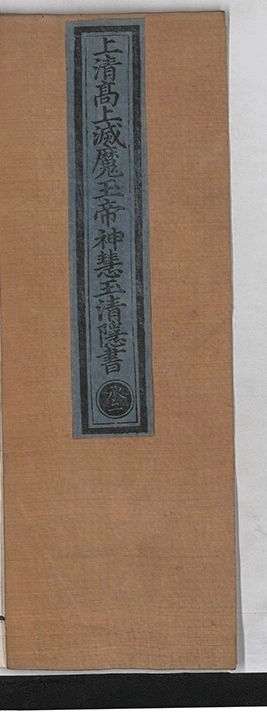 上清髙上滅魔玉帝神慧玉清隱書
承二